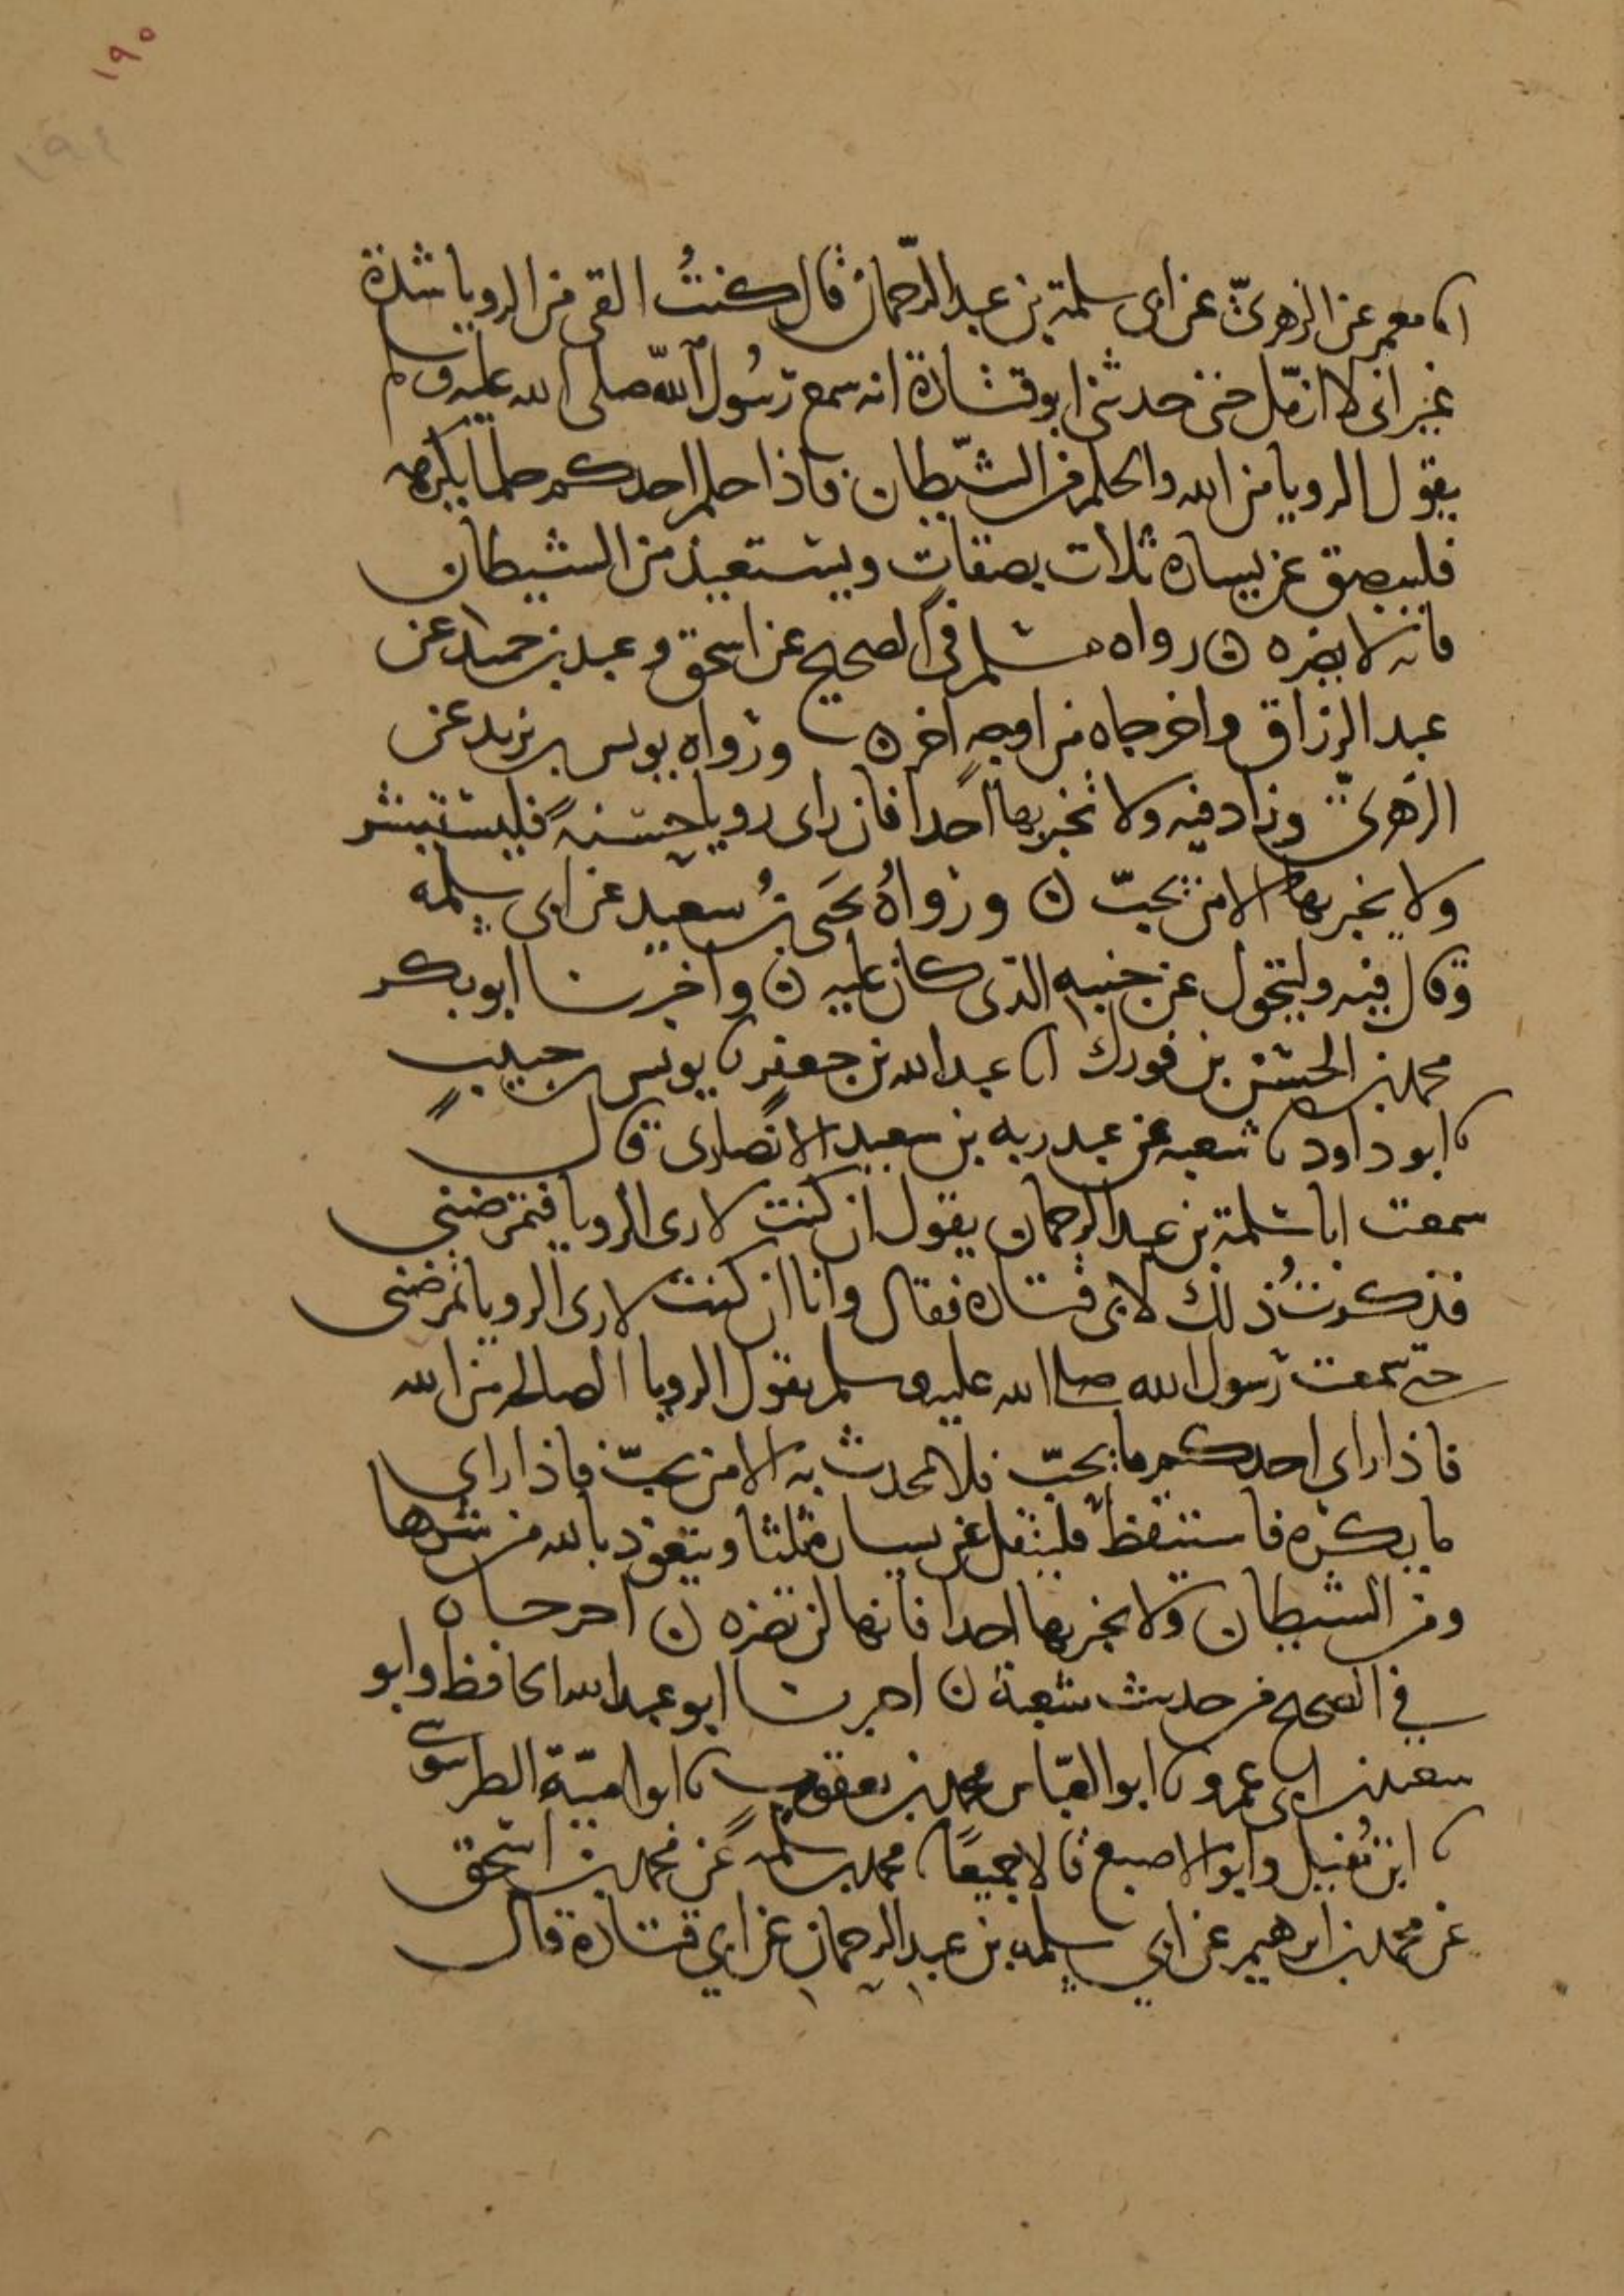 ١٩٥
١٩٤
انا معمر عن الزهريّ عن ابى سلمة بن عبد الرّحمان قال كنتُ القى من الرويا شدة
غير انى لا ازمّل حتى حدثنى ابو قتادة انه سمع رسُول الله صلى الله عليه وسلم
يقول الرويا من الله والحلم من الشّيطان فاذا حلم احدكم حلما يكرهه
فليبصق عن يساره ثلاث بصقات ويستعيذ من الشيطان
فانه لا يضره ن رواه مسلم في الصحيح عن اسحق وعبد بن حميد عن
عبد الرزاق واخرجاه من اوجهٍ اخر ن ورواه يونس بن يزيد عن
الزهريّ وزاد فيه ولا تخبر بها احدا فان راى رويا حسنةً فليستبشر
ولا يخبر بها الا من يحبّ ن ورواهُ يحَيى بنُ سعيد عن ابى سلمه
وقال فيه وليتحول عن جنبه الذى كان عليه ن واخبرنا ابو بكر
محمد بن الحسن بن فورك انا عبد الله بن جعفرٍ نا يونس بن حبيبٍ
نا ابو داود نا شعبه عن عبد ربه بن سعيد الانصارى قال
سمعت ابا سلمة بن عبد الرحمان يقول ان كنت لارى الرويا فتمرضنى
فذكرتُ ذلك لابى قتادة فقال وانا ان كنت لارى الرويا تمرضنى
حتى سمعت رسول الله صلى الله عليه وسلم يقول الرويا الصالحه من الله
فاذا راى احدكم ما يحبّ فلا يحدث به الا من يحبّ فاذا راى
ما يكره فاستيقظ فليتفل عن يساره ثلثا ويتعوّذ بالله من شرها
ومن الشيطان ولا يخبر بها احدا فانها لن تضره ن اخرجاه
في الصحيح من حديث شعبة ن اخبرنا ابو عبد الله الحافظ وابو
سعيد بن ابى عمرو نا ابو العبّاس محمد بن يعقوب نا ابو اميّة الطرسوسي
نا ابن نُفيل وابو الاصبع قالا جميعًا نا محمد بن سلمه عن محمد بن اسحق
عن محمد بن ابرهيم عن ابي سلمه بن عبد الرحمان عن ابي قتادة قال